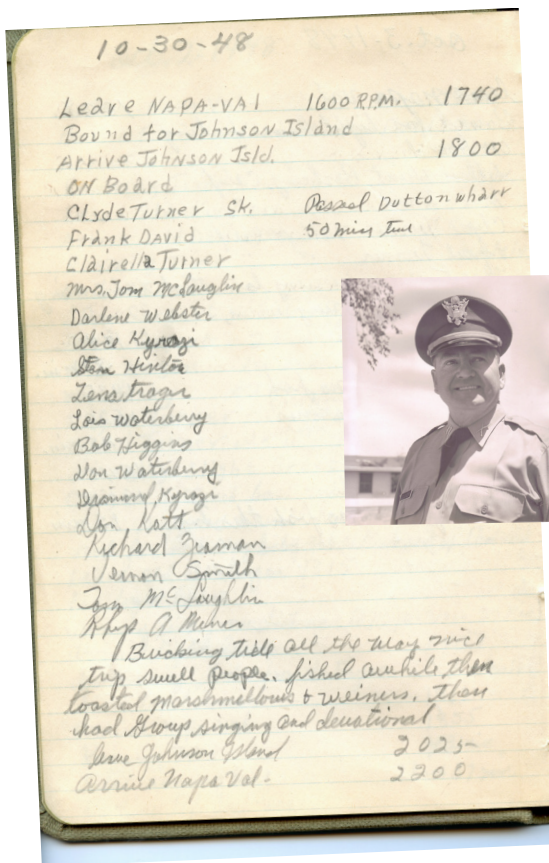 10-30-48
Leave NAPA-VAl 1600 R.P.M. 1740
Bound for Johnson Island
Arrive Johnson Isld. 1800
ON Board
Clyde Turner Sk. Passed Dutton wharf
Frank David 50 min
Clairella Turner
Mrs. Tom McLaughlin
Darlene Webster
Alice Kyrazi
Hinton
Lena
Lois Waterberry
Bob Higgins
Don Waterberry
Kyrazi
Don Katt
Richard
Vernon Smith
Tom McLaughlin
A
Bucking tide all the way nice
trip swell people. fished awhile then
toasted marshmellows & weiners. then
had Group singing and devotional
leave Johnson Island 2025
arrive Napa Val. 2200